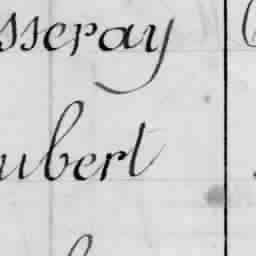 sseray
ubert